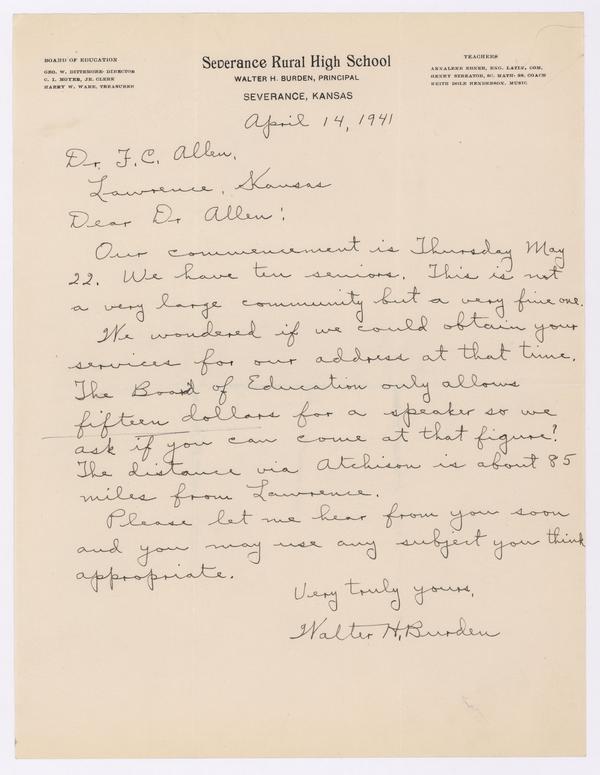 BOARD OF EDUCATION
GEO. W. DITTEMORE, DIRECTOR
C. I. MOYER, JR. CLERK
HARRY W. WARE, TREASURER
Severance Rural High School
WALTER H. BURDEN, PRINCIPAL
SEVERANCE, KANSAS
TEACHERS
ANNALENE EBNER, ENG. LATIN, COM.
HENRY STREATOR, SC. MATH. SS. COACH
KEITH DOLE HENDERSON, MUSIC
April 14, 1941
Dr. F. C. Allen,
Lawrence, Kansas
Dear Dr Allen:
Our commencement is Thursday May
22. We have ten seniors. This is not
a very large community but a very fine one.
We wondered if we could obtain your
services for our address at that time.
The Board of Education only allows
fifteen dollars for a speaker so we
ask if you can come at that figure?
The distance via Atchison is about 85
miles from Lawrence.
Please let me hear from you soon
and you may use any subject you think
appropriate.
Very truly yours,
Walter H. Burden